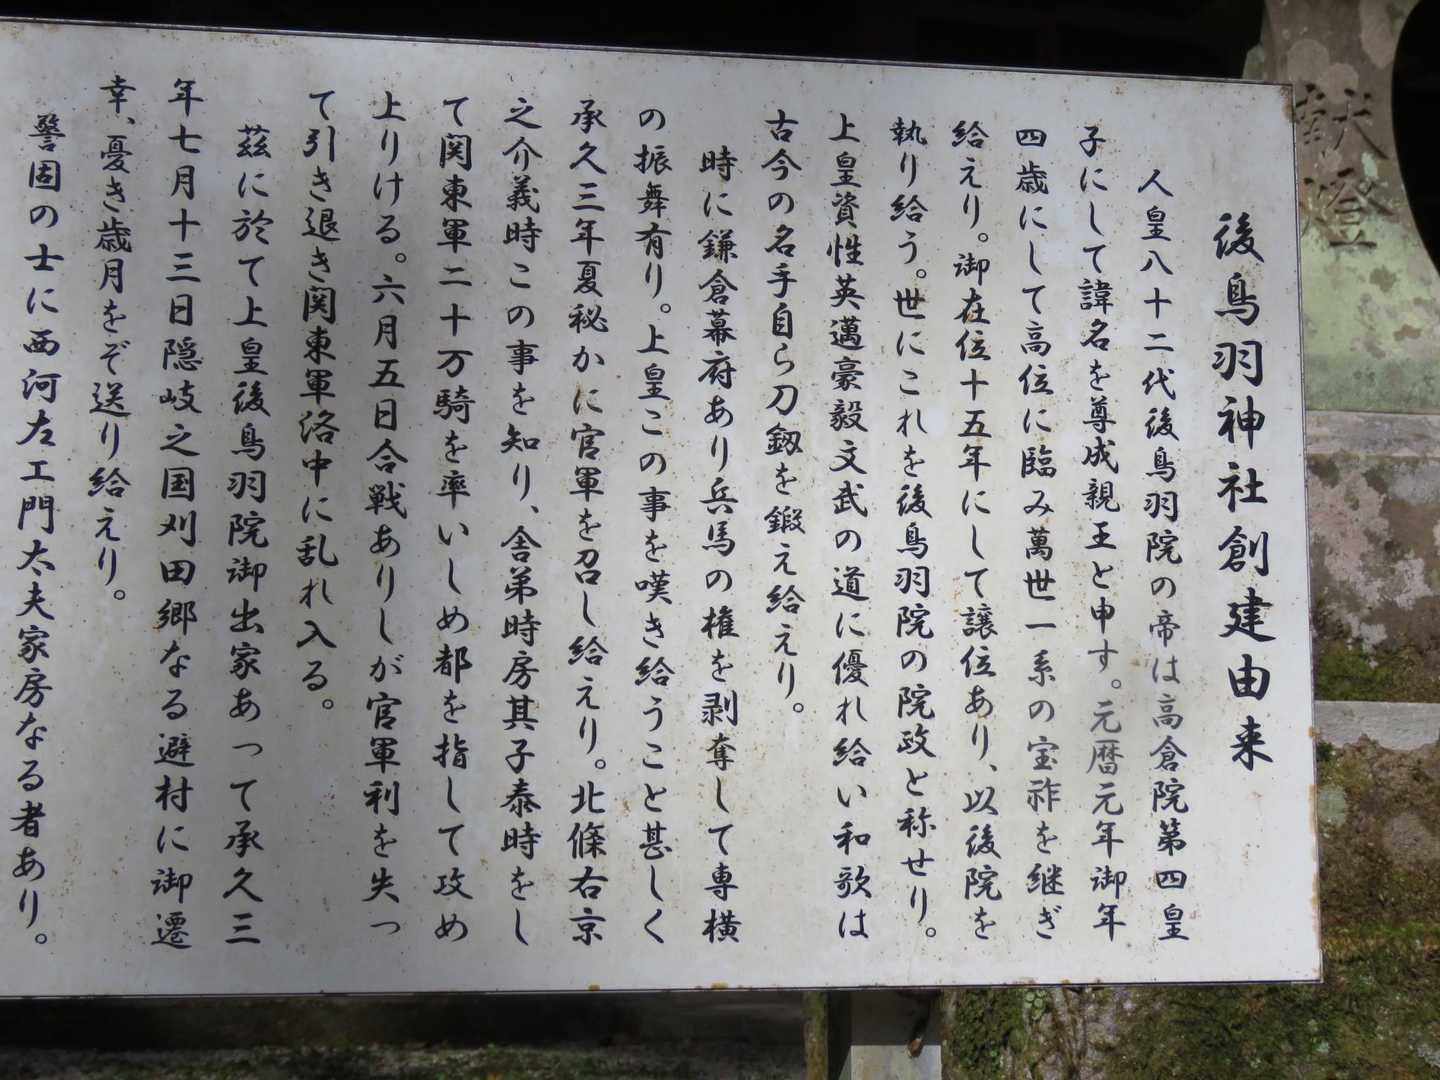 後鳥羽神社創建由来
人皇八十二代後鳥羽院の帝は高倉院第四皇
子にして諱名を尊成親王と申す。元暦元年御年
四歳にして高位に臨み萬世一系の宝祚を継ぎ
給えり。御在位十五年にして譲位あり、以後院を
執り給う。世にこれを後鳥羽院の院政と称せり。
上皇資性英邁豪毅文武の道に優れ給い和歌は
古今の名手自ら刀釼を鍛え給えり。
時に鎌倉幕府あり兵馬の権を剥奪して専横
の振舞有り。上皇この事を嘆き給うこと甚しく
承久三年夏秘かに官軍を召し給えり。北條右京
之介義時この事を知り、舎弟時房其子泰時をし
て関東軍二十万騎を率いしめ都を指して攻め
上りける。六月五日合戦ありしが官軍利を失っ
て引き退き関東軍洛中に乱れ入る。
茲に於て上皇後鳥羽院御出家あって承久三
年七月十三日隠岐之国刈田郷なる避村に御遷
幸、憂き歳月をぞ送り給えり。
警固の士に西河左エ門太夫家房なる者あり。
献燈